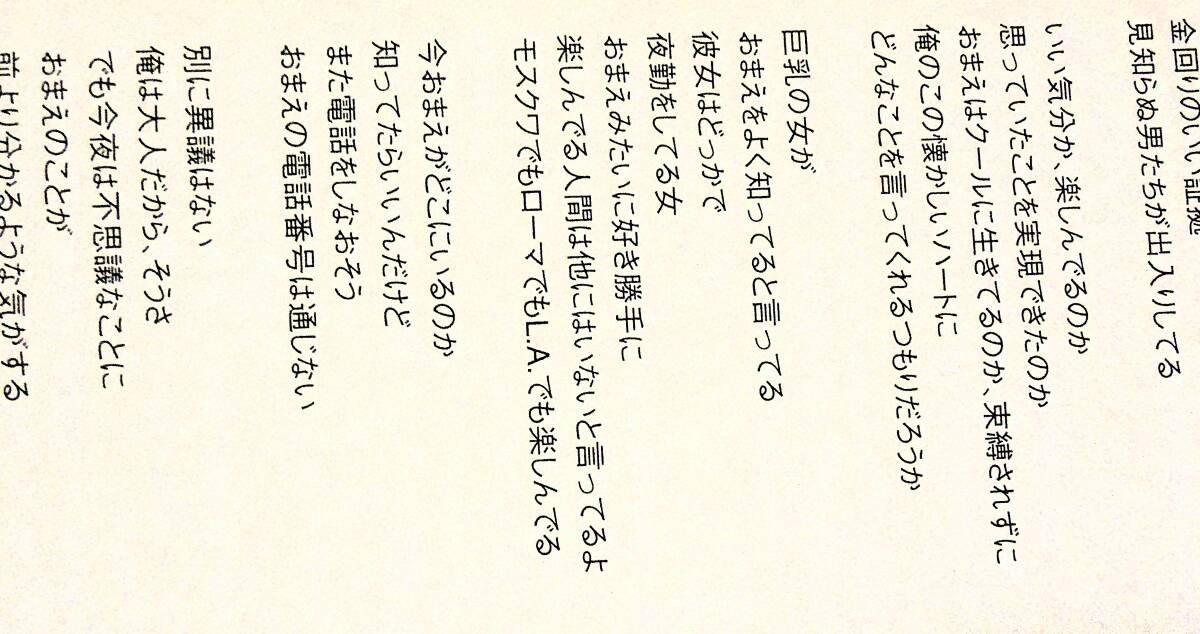 金回りのいい証拠
見知らぬ男たちが出入りしてる
いい気分か、楽しんでるのか
思っていたことを実現できたのか
おまえはクールに生きてるのか、束縛されずに
俺のこの懐かしいハートに
どんなことを言ってくれるつもりだろうか
巨乳の女が
おまえをよく知ってると言ってる
彼女はどっかで
夜勤をしてる女
おまえみたいに好き勝手に
楽しんでる人間は他にはいないと言ってるよ
モスクワでもローマでもL.A.でも楽しんでる
今おまえがどこにいるのか
知ってたらいいんだけど
また電話をしなおそう
おまえの電話番号は通じない
別に異議はない
俺は大人だから、そうさ
でも今夜は不思議なことに
おまえのことが
前より分かるような気がする